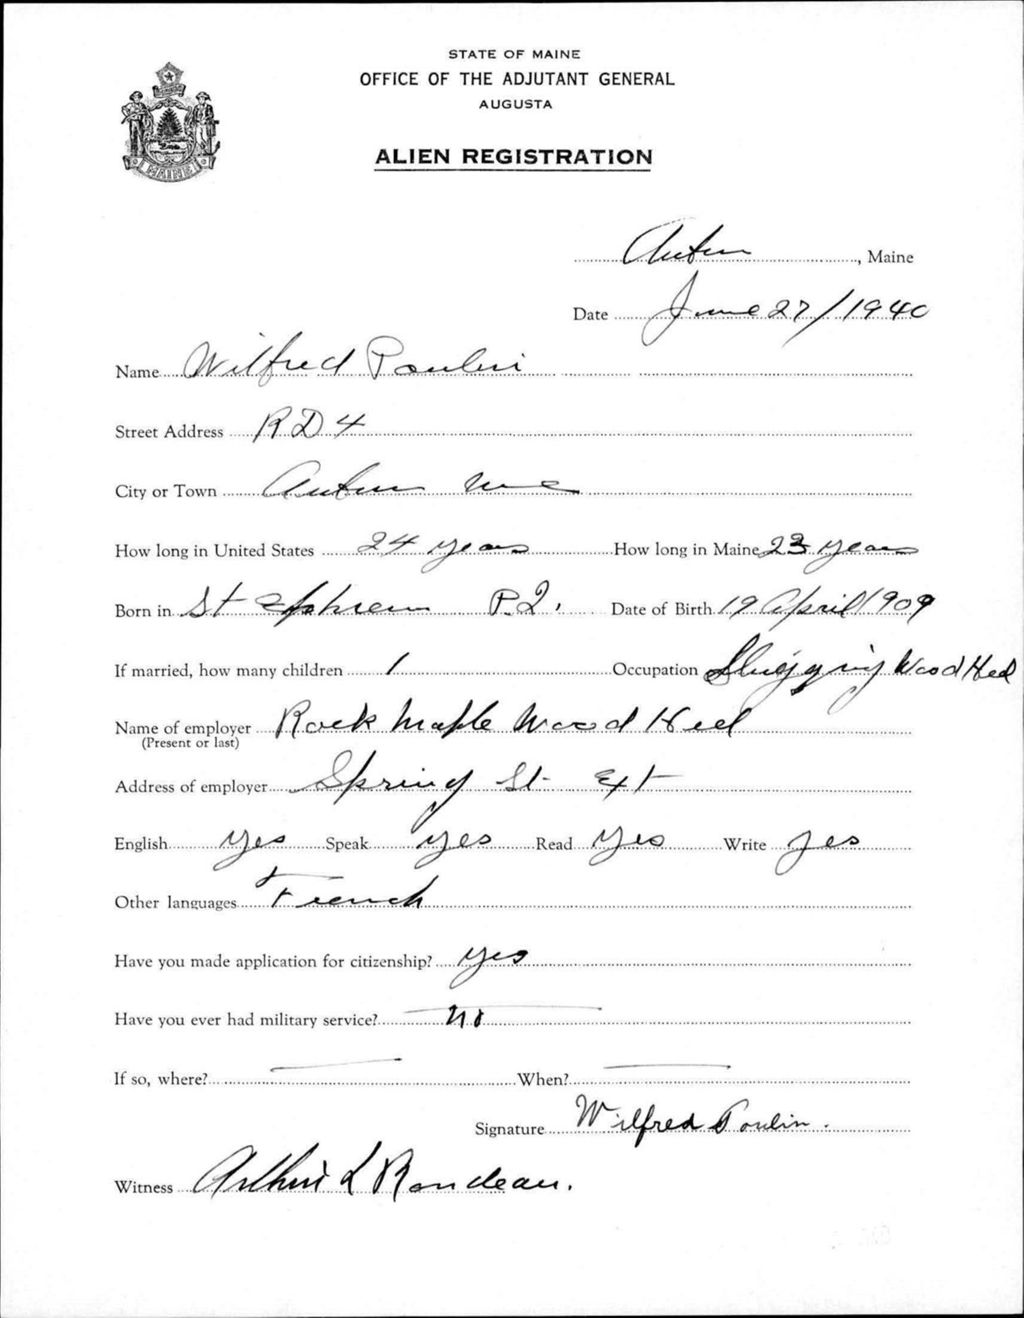 STATE OF MAINE
OFFICE OF THE ADJUTANT GENERAL
AUGUSTA
ALIEN REGISTRATION
MAINE
Auburn, Maine
Date June 27/1940
Name Wilfred Poulin
Street Address RD 4
City or Town Auburn Me
How long in United States 24 years How long in Maine 23 years
Born in St Ephrem P.Q. Date of Birth 19 April 1909
If married, how many children 1 Occupation Slugging Wood Heel
Name of employer Rock Maple Wood Heel
(Present or last)
Address of employer Spring St Ext
English yes Speak yes Read yes Write yes
Other languages French
Have you made application for citizenship? yes
Have you ever had military service? no
If so, where? — When? —
Signature Wilfred Poulin.
Witness Arthur L Rondeau.